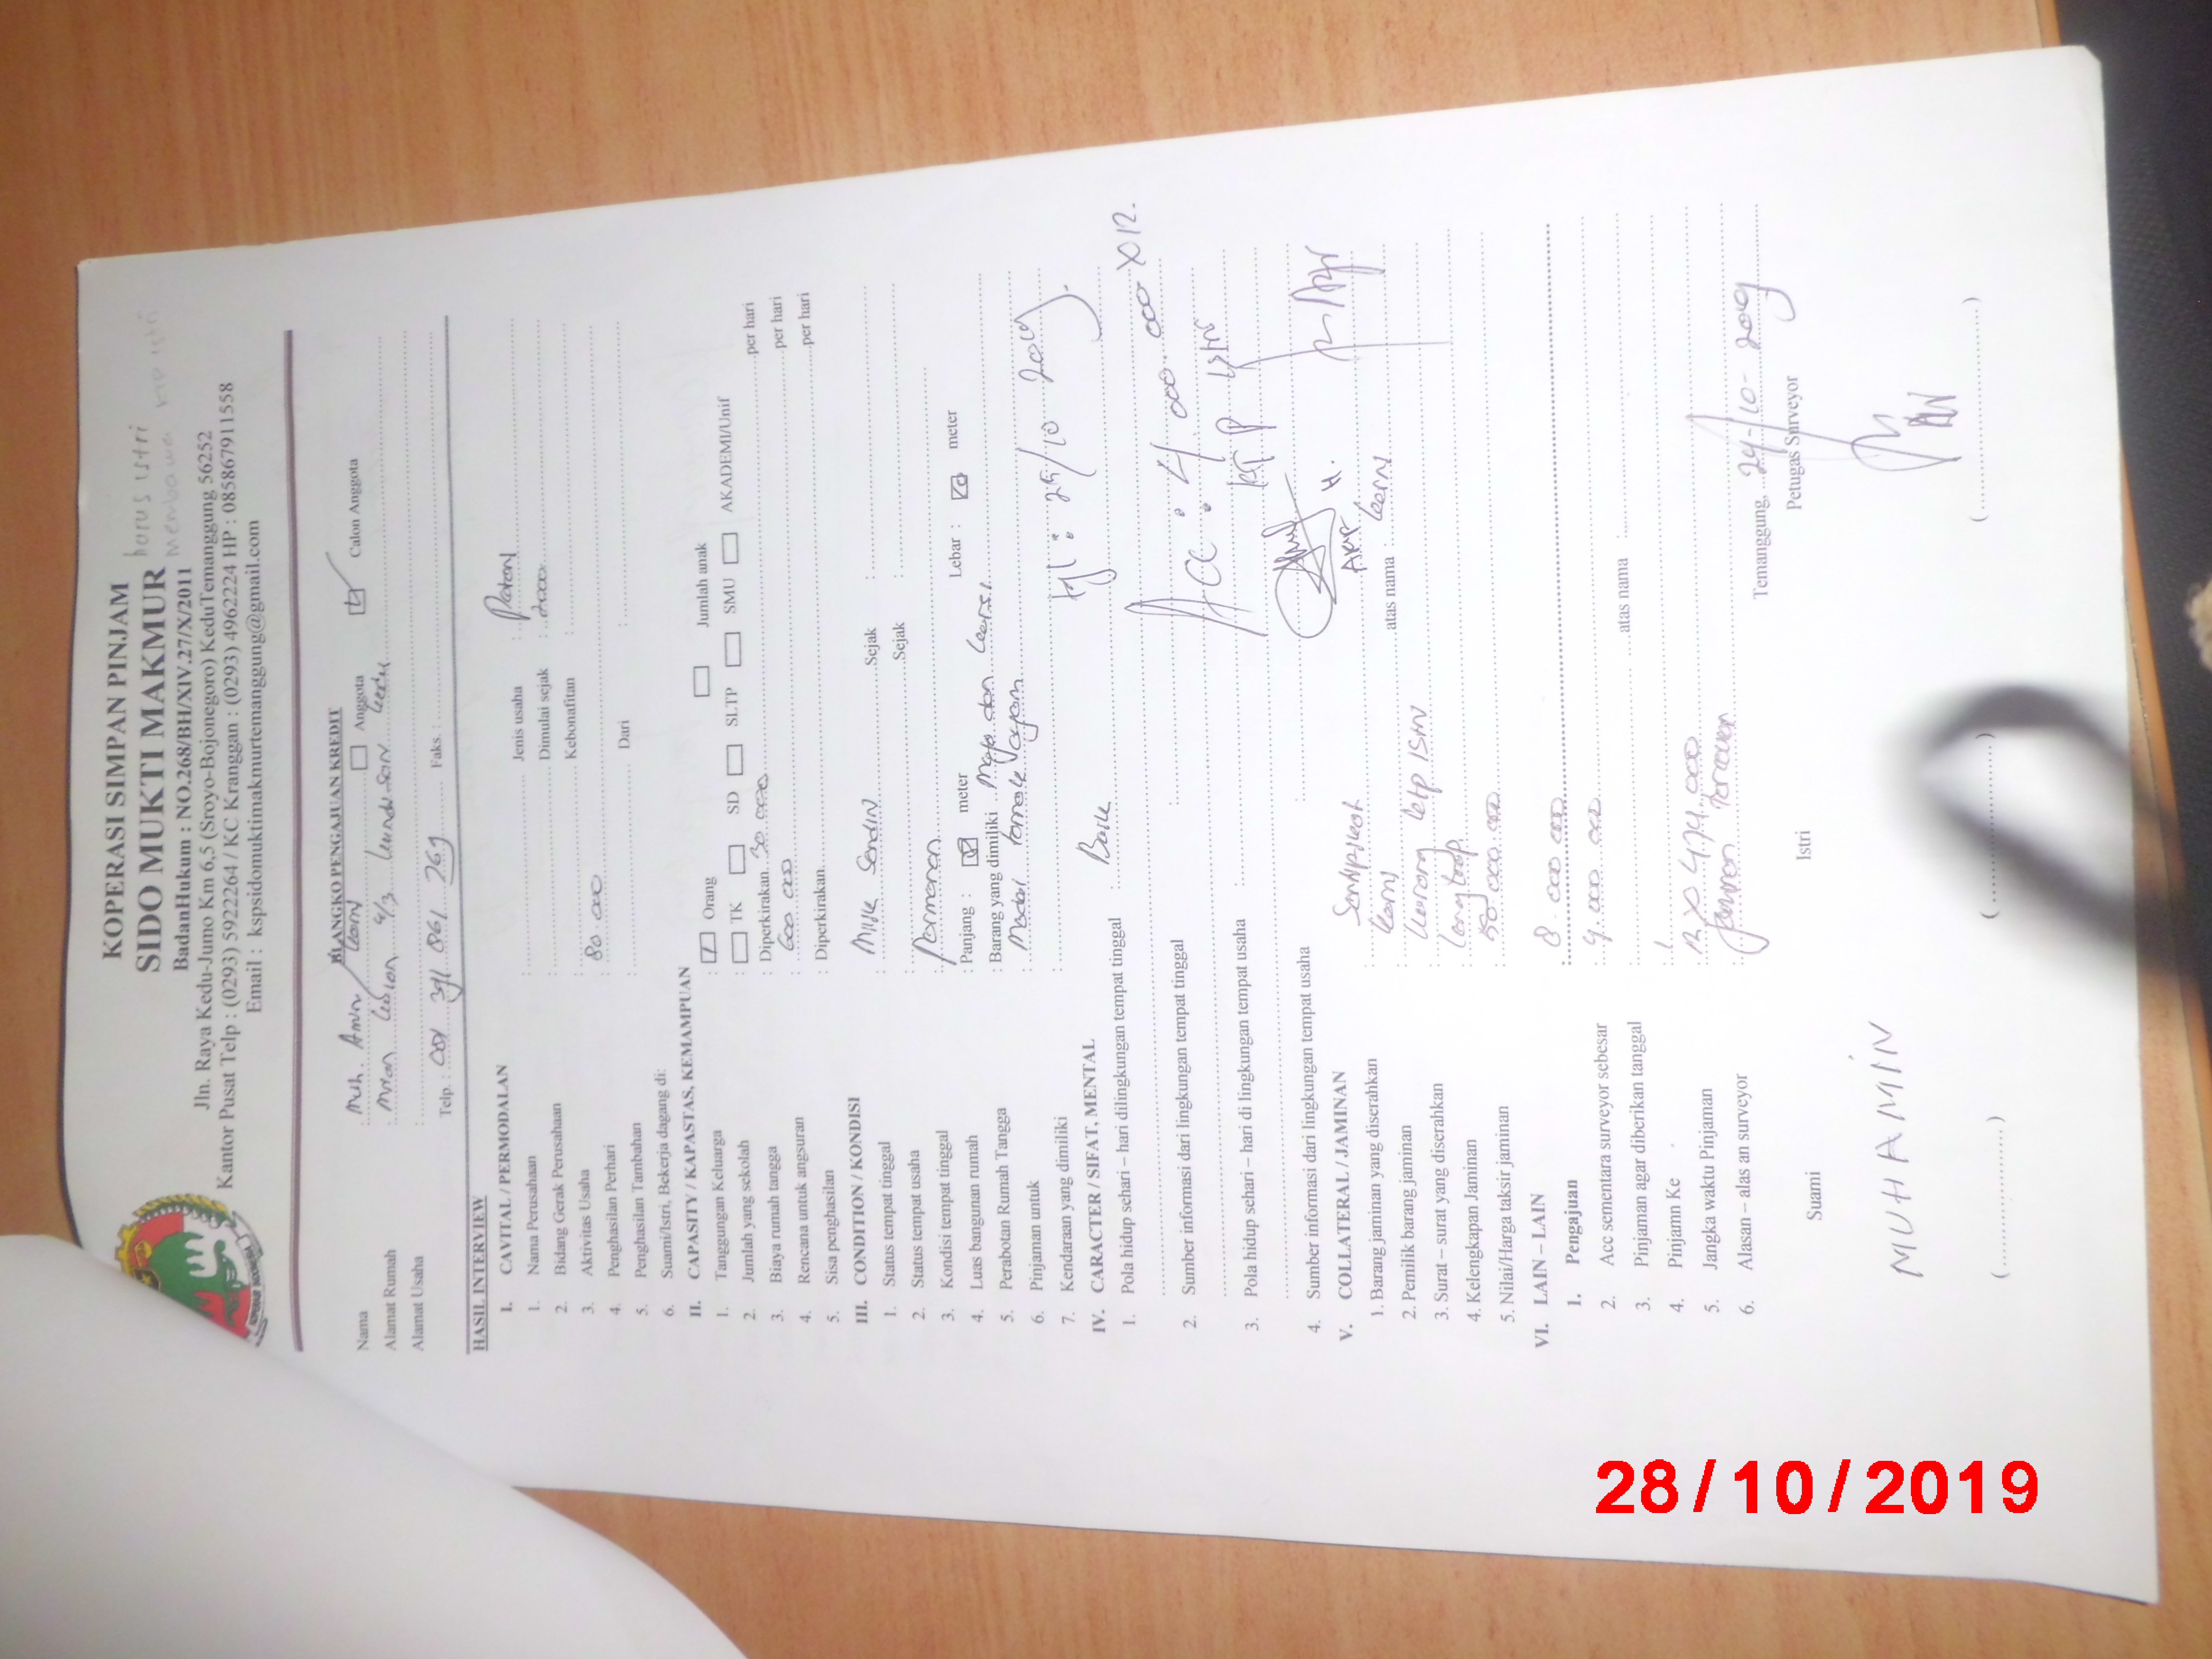 KOPERASI SIMPAN PINJAM
SIDO MUKTI MAKMUR
harus istri
membawa KTP istri
BadanHukum : NO.268/BH/XIV.27/X/2011
Jln. Raya Kedu-Jumo Km 6,5 (Sroyo-Bojonegoro) KeduTemanggung 56252
Kantor Pusat Telp : (0293) 5922264 / KC Kranggan : (0293) 4962224 HP : 085867911558
Email : kspsidomuktimakmurtemanggung@gmail.com
BLANGKO PENGAJUAN KREDIT
Nama : Muh. Amin Anggota Calon Anggota
Alamat Rumah : 4/3 Kundisari Kedu
Alamat Usaha :
Telp. : Faks :
HASIL INTERVIEW
I. CAVITAL / PERMODALAN
1. Nama Perusahaan : Jenis usaha :
2. Bidang Gerak Perusahaan : Dimulai sejak : 2000
3. Aktivitas Usaha : Kebonafitan :
4. Penghasilan Perhari : 80 000
5. Penghasilan Tambahan : Dari :
6. Suami/Istri, Bekerja dagang di:
II. CAPASITY / KAPASTAS, KEMAMPUAN
1. Tanggungan Keluarga : Orang Jumlah anak
2. Jumlah yang sekolah : TK SD SLTP SMU AKADEMI/Unif
3. Biaya rumah tangga : Diperkirakan 30 000 per hari
4. Rencana untuk angsuran : 600 000 per hari
5. Sisa penghasilan : Diperkirakan per hari
III. CONDITION / KONDISI
1. Status tempat tinggal : Milik Sendiri Sejak :
2. Status tempat usaha : Sejak :
3. Kondisi tempat tinggal : Permanen
4. Luas bangunan rumah : Panjang : meter Lebar : meter
5. Perabotan Rumah Tangga : Barang yang dimiliki Meja dan kursi
6. Pinjaman untuk : Modal ternak ayam
7. Kendaraan yang dimiliki :
tgl : 29/10 2019
IV. CARACTER / SIFAT, MENTAL
1. Pola hidup sehari – hari dilingkungan tempat tinggal : Baik
Acc : 4.000.000 X12.
2. Sumber informasi dari lingkungan tempat tinggal :
KTP istri
3. Pola hidup sehari – hari di lingkungan tempat usaha :
4. Sumber informasi dari lingkungan tempat usaha :
V. COLLATERAL / JAMINAN
1. Barang jaminan yang diserahkan :
2. Pemilik barang jaminan : atas nama :
3. Surat – surat yang diserahkan : kurang ktp
4. Kelengkapan Jaminan : lengkap
5. Nilai/Harga taksir jaminan : 50 000 000
VI. LAIN – LAIN
1. Pengajuan : 8 000 000
2. Acc sementara surveyor sebesar : 4.000 000
3. Pinjaman agar diberikan tanggal : atas nama :
4. Pinjamn Ke : 1
5. Jangka waktu Pinjaman : 12 X 474.000
6. Alasan – alas an surveyor : Jaminan
Temanggung, 24-10-2019
Suami Istri Petugas Surveyor
MUHAMIN
28/10/2019